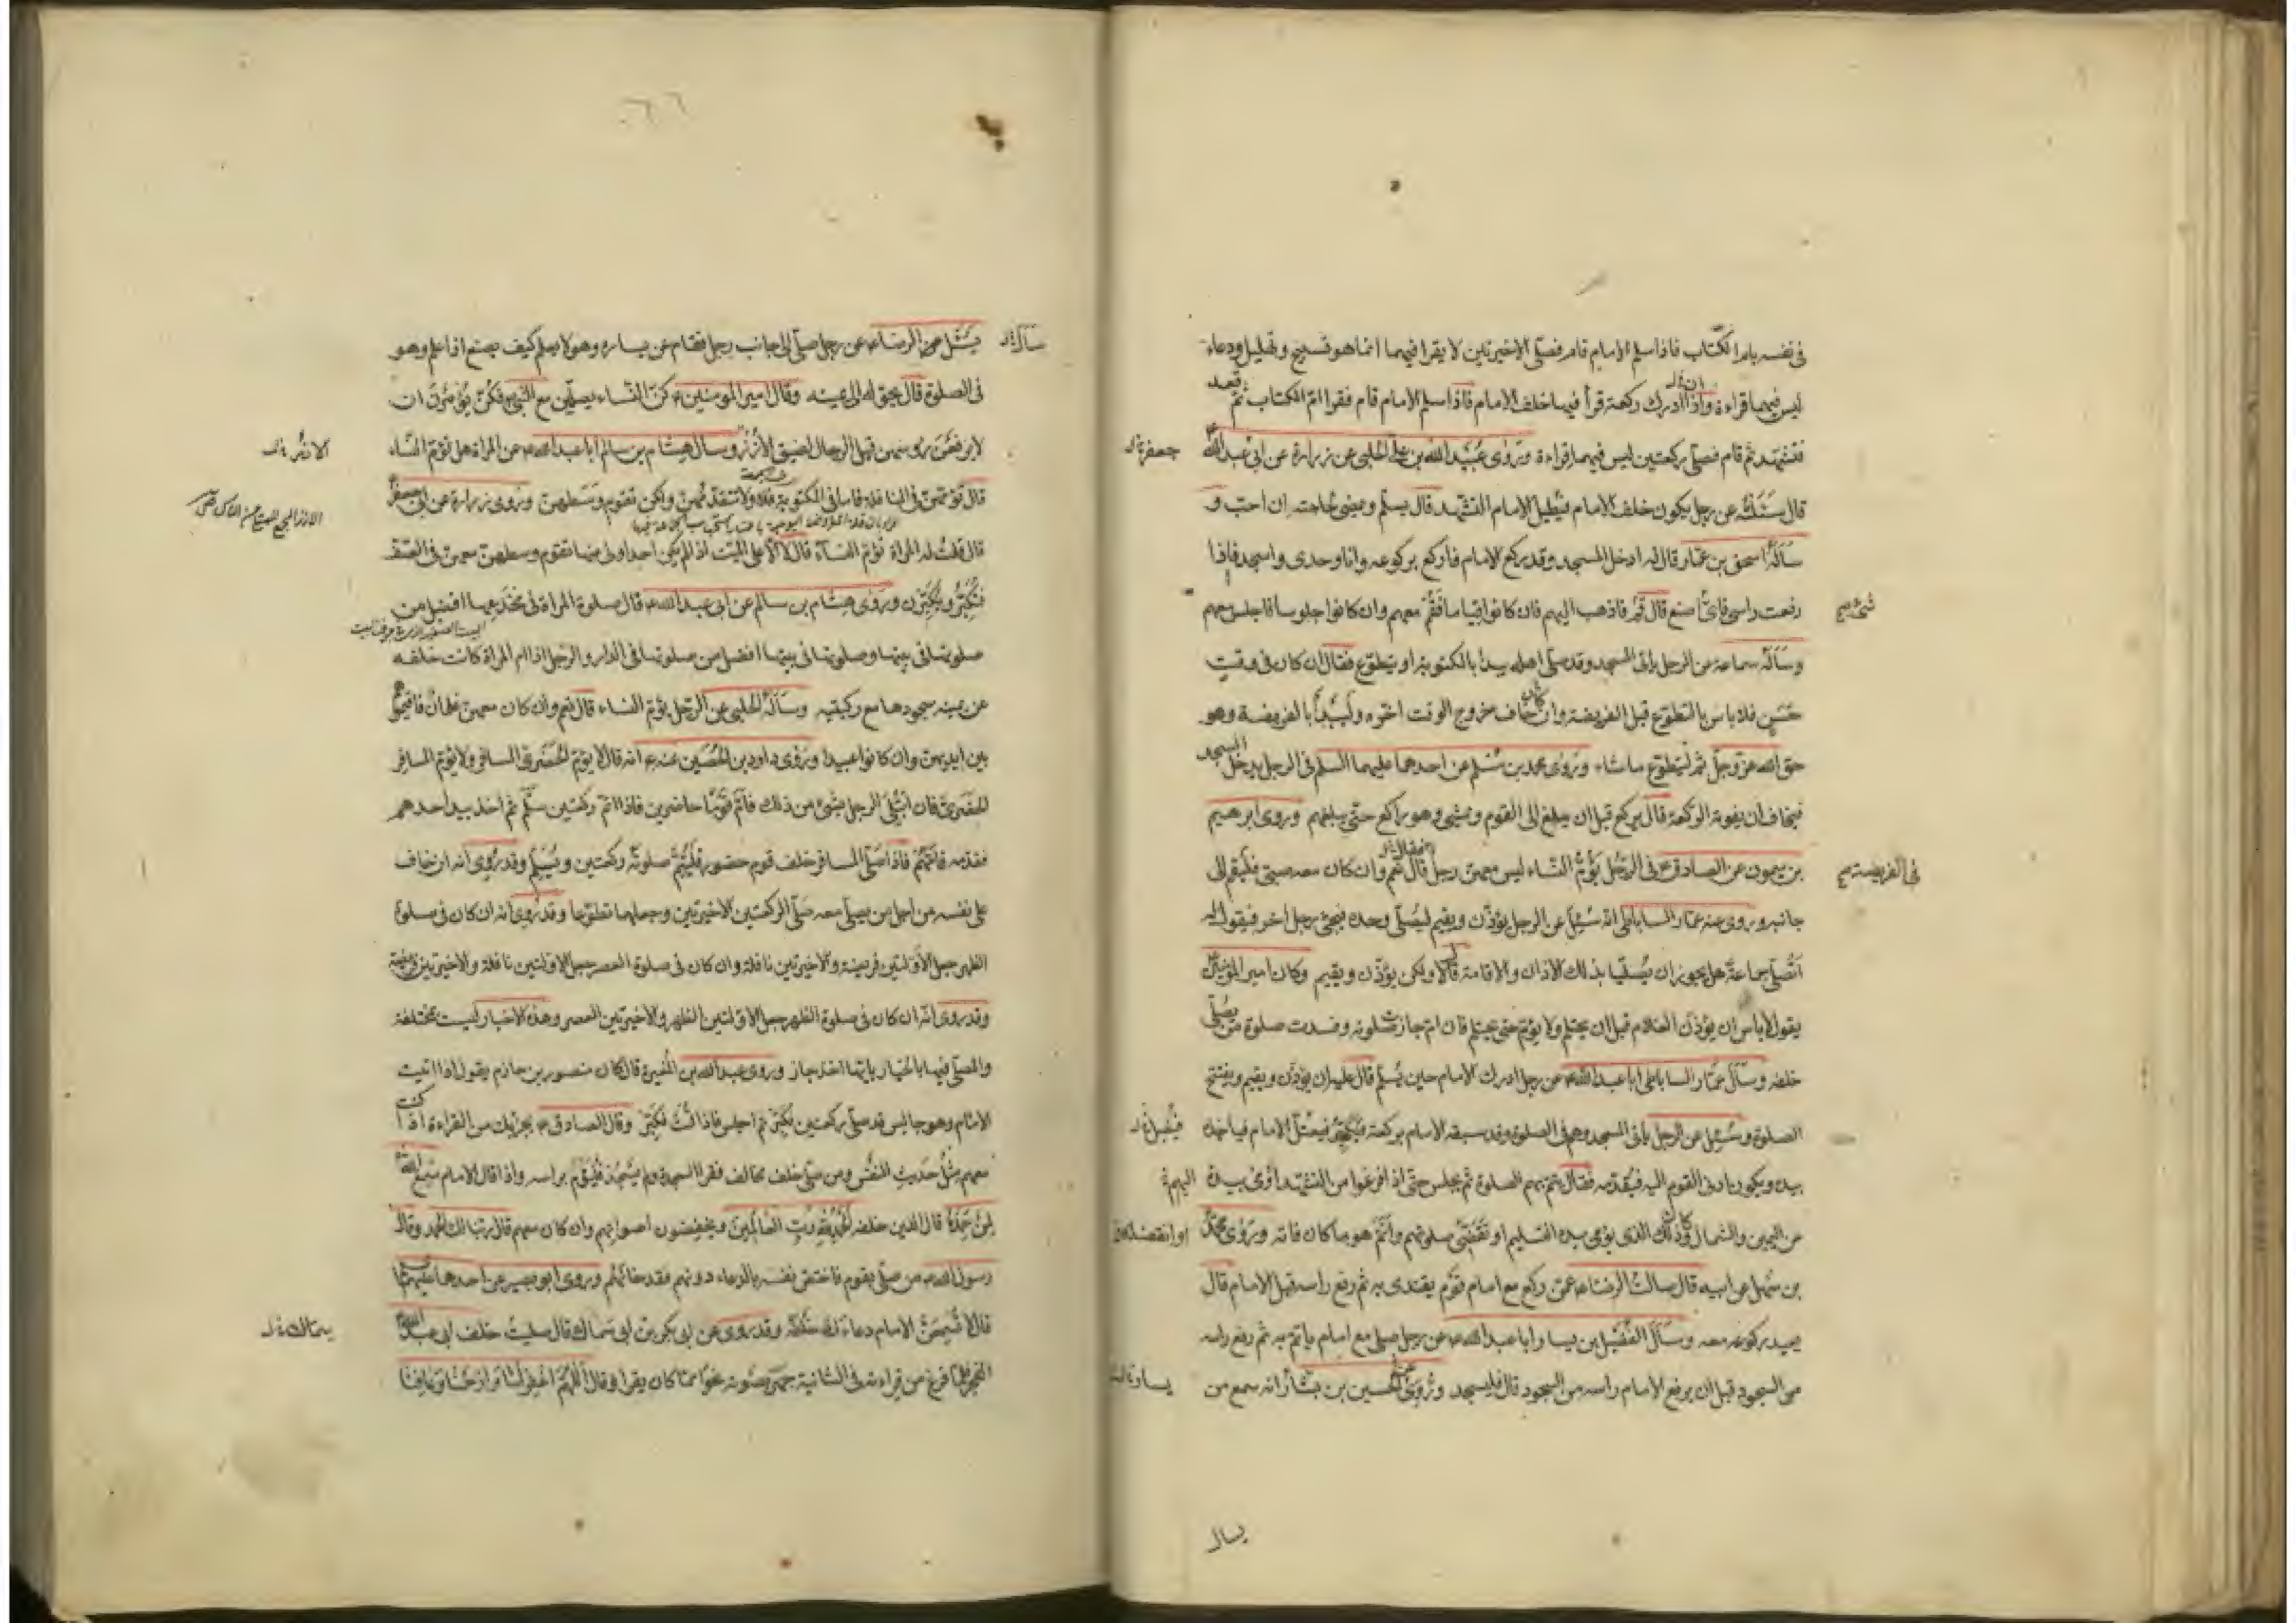 فى نفسه بام الكتاب فاذا سلم الامام قام فصلى الاخيرتين لا يقرا فيهما انما هو تسبيح وتهليل ودعاء
ليس فيهما قراءة واذا ادرك ركعة قرأ فيها خلف الامام فاذا سلم الامام قام فقرا ام الكتاب ثم قعد
فتشهد ثم قام فصلى ركعتين ليس فيهما قراءة وروى عبيد الله بن على الحلبى عن زرارة عن ابى عبد الله
جعفر
قال سئلته عن رجل يكون خلف الامام فيطيل الامام التشهد قال يسلم ويمضى لحاجته ان احب و
سأله اسحق بن عمار قال له ادخل المسجد وقد ركع الامام فاركع بركوعه وانا وحدى واسجد فاذا
رفعت راسى فاى شئ اصنع قال قم فاذهب اليهم فان كانوا قياما فقم معهم وان كانوا جلوسا فاجلس معهم
وسأله سماعة عن الرجل ياتى المسجد وقد صلى اهله يبدا بالمكتوبة او يتطوع فقال ان كان فى وقت
حسن فلا باس بالتطوع قبل الفريضة وان كان خاف خروج الوقت اخره وليبدأ بالفريضة وهو
حق الله عز وجل ثم ليتطوع ما شاء وروى محمد بن مسلم عن احدهما عليهما السلم فى الرجل يدخل المسجد
فيخاف ان يفوته الركعة قال يركع قبل ان يبلغ الى القوم ويمشى وهو راكع حتى يبلغهم وروى ابرهيم
بن ميمون عن الصادق ع فى الرجل يؤم النساء ليس معهن رجل قال نعم وان كان معه صبى فليقم الى
فى الفريضة
جانبه وروى عنه عمار الساباطى انه سئل عن الرجل يؤذن ويقيم ليصلى وحده فيجئ رجل اخر فيقول له
انصلى جماعة هل يجوز ان يصليا بذلك الاذان والاقامة قال لا ولكن يؤذن ويقيم وكان امير المؤمنين
يقول لا باس ان يؤذن الغلام قبل ان يحتلم ولا يؤم حتى يحتلم فان ام جازت صلوته وفسدت صلوة من يصلى
خلفه وسأل عمار الساباطى ابا عبد الله ع عن رجل ادرك الامام حين يسلم قال عليه ان يؤذن ويقيم ويفتتح
الصلوة وسئل عن الرجل يأتى المسجد وهم فى الصلوة وقد سبقه الامام بركعة فيكبر فيعتل الامام فياخذ
بيده ويكون ادنى القوم اليه فيقدمه فقال يتم بهم الصلوة ثم يجلس حتى اذا فرغوا من التشهد اومى بيده
اليهم
من اليمين والشمال وكان ذلك الذى يؤمى بيده التسليم او تقضى صلوتهم واتم هو ما كان فاته وروى محمد
بن سهل عن ابيه قال سالت الرضا ع عمن ركع مع امام قوم يقتدى به ثم رفع راسه قبل الامام قال
يعيد ركوعه معه وسأل الفضيل بن يسار ابا عبد الله ع عن رجل صلى مع امام ياتم به ثم رفع راسه
من السجود قبل ان يرفع الامام راسه من السجود قال فليسجد وروى عن الحسين بن بشار انه سمع من
يسار
يسال
٦٦
يسئل عن الرضا ع عن رجل صلى الى جانب رجل فقام عن يساره وهو لا يعلم كيف يصنع اذا علم وهو
فى الصلوة قال يحوله الى يمينه وقال امير المومنين ع كن النساء يصلين مع النبى ص فكن يؤمرن ان
لا يرفعن رؤسهن قبل الرجال لضيق الازر وسال هشام بن سالم ابا عبد الله ع عن المراة هل تؤم النساء
قال تؤمهن فى النافلة فاما فى المكتوبة فلا ولا تتقدمهن ولكن تقوم وسطهن وروى زرارة عن ابى جعفر
قال قلت له المراة تؤم النساء قال لا الا على الميت اذا لم يكن احد اولى منها تقوم وسطهن معهن فى الصف
فتكبر ويكبرن وروى هشام بن سالم عن ابى عبد الله ع قال صلوة المراة فى مخدعها افضل من
صلوتها فى بيتها وصلوتها فى بيتها افضل من صلوتها فى الدار والرجل اذا ام المراة كانت خلفه
عن يمينه سجودها مع ركبتيه وسأله الحلبى عن الرجل يؤم النساء قال نعم وان كان معهن غلمان فاقيموا
بين ايديهن وان كانوا عبيدا وروى داود بن الحصين عنه ع انه قال لا يؤم الحضرى المسافر ولا يؤم المسافر
الحضرى فان ابتلى الرجل بشئ من ذلك فام قوما حاضرين فاذا اتم ركعتين سلم ثم اخذ بيد احدهم
فقدمه فامهم فاذا صلى المسافر خلف قوم حضور فليتم صلوته ركعتين ويسلم وقد روى انه ان خاف
على نفسه من اجل من يصلى معه صلى الركعتين الاخيرتين وجعلهما تطوعا وقد روى انه ان كان فى صلوة
الظهر جعل الاولتين فريضة والاخيرتين نافلة وان كان فى صلوة العصر جعل الاولتين نافلة والاخيرتين فريضة
وقد روى انه ان كان فى صلوة الظهر جعل الاولتين الظهر والاخيرتين العصر وهذه الاخبار ليست مختلفة
والمصلى فيها بالخيار بايها اخذ جاز وروى عبد الله بن المغيرة قال كان منصور بن حازم يقول اذا اتيت
الامام وهو جالس قد صلى ركعتين فكبر ثم اجلس فاذا قمت فكبر وقال الصادق ع يجزيك من القراءة اذا كنت
معهم مثل حديث النفس ومن صلى خلف مخالف فقرا السجدة ولم يسجد فليؤم براسه واذا قال الامام سمع الله
لمن حمده قال الذين خلفه الحمد لله رب العالمين ويخفضون اصواتهم وان كان معهم قال ربنا لك الحمد وقال
رسول الله ص من صلى بقوم فاختص نفسه بالدعاء دونهم فقد خانهم وروى ابو بصير عن احدهما عليهما
قال لا تسمعن الامام دعاءك خلفه وقد روى عن ابى بكر بن ابى سماك قال صليت خلف ابى عبد الله
الفجر فلما فرغ من قراءته فى الثانية جهر بصوته نحوا مما كان يقرا وقال اللهم اغفر لنا وارحمنا وعافنا